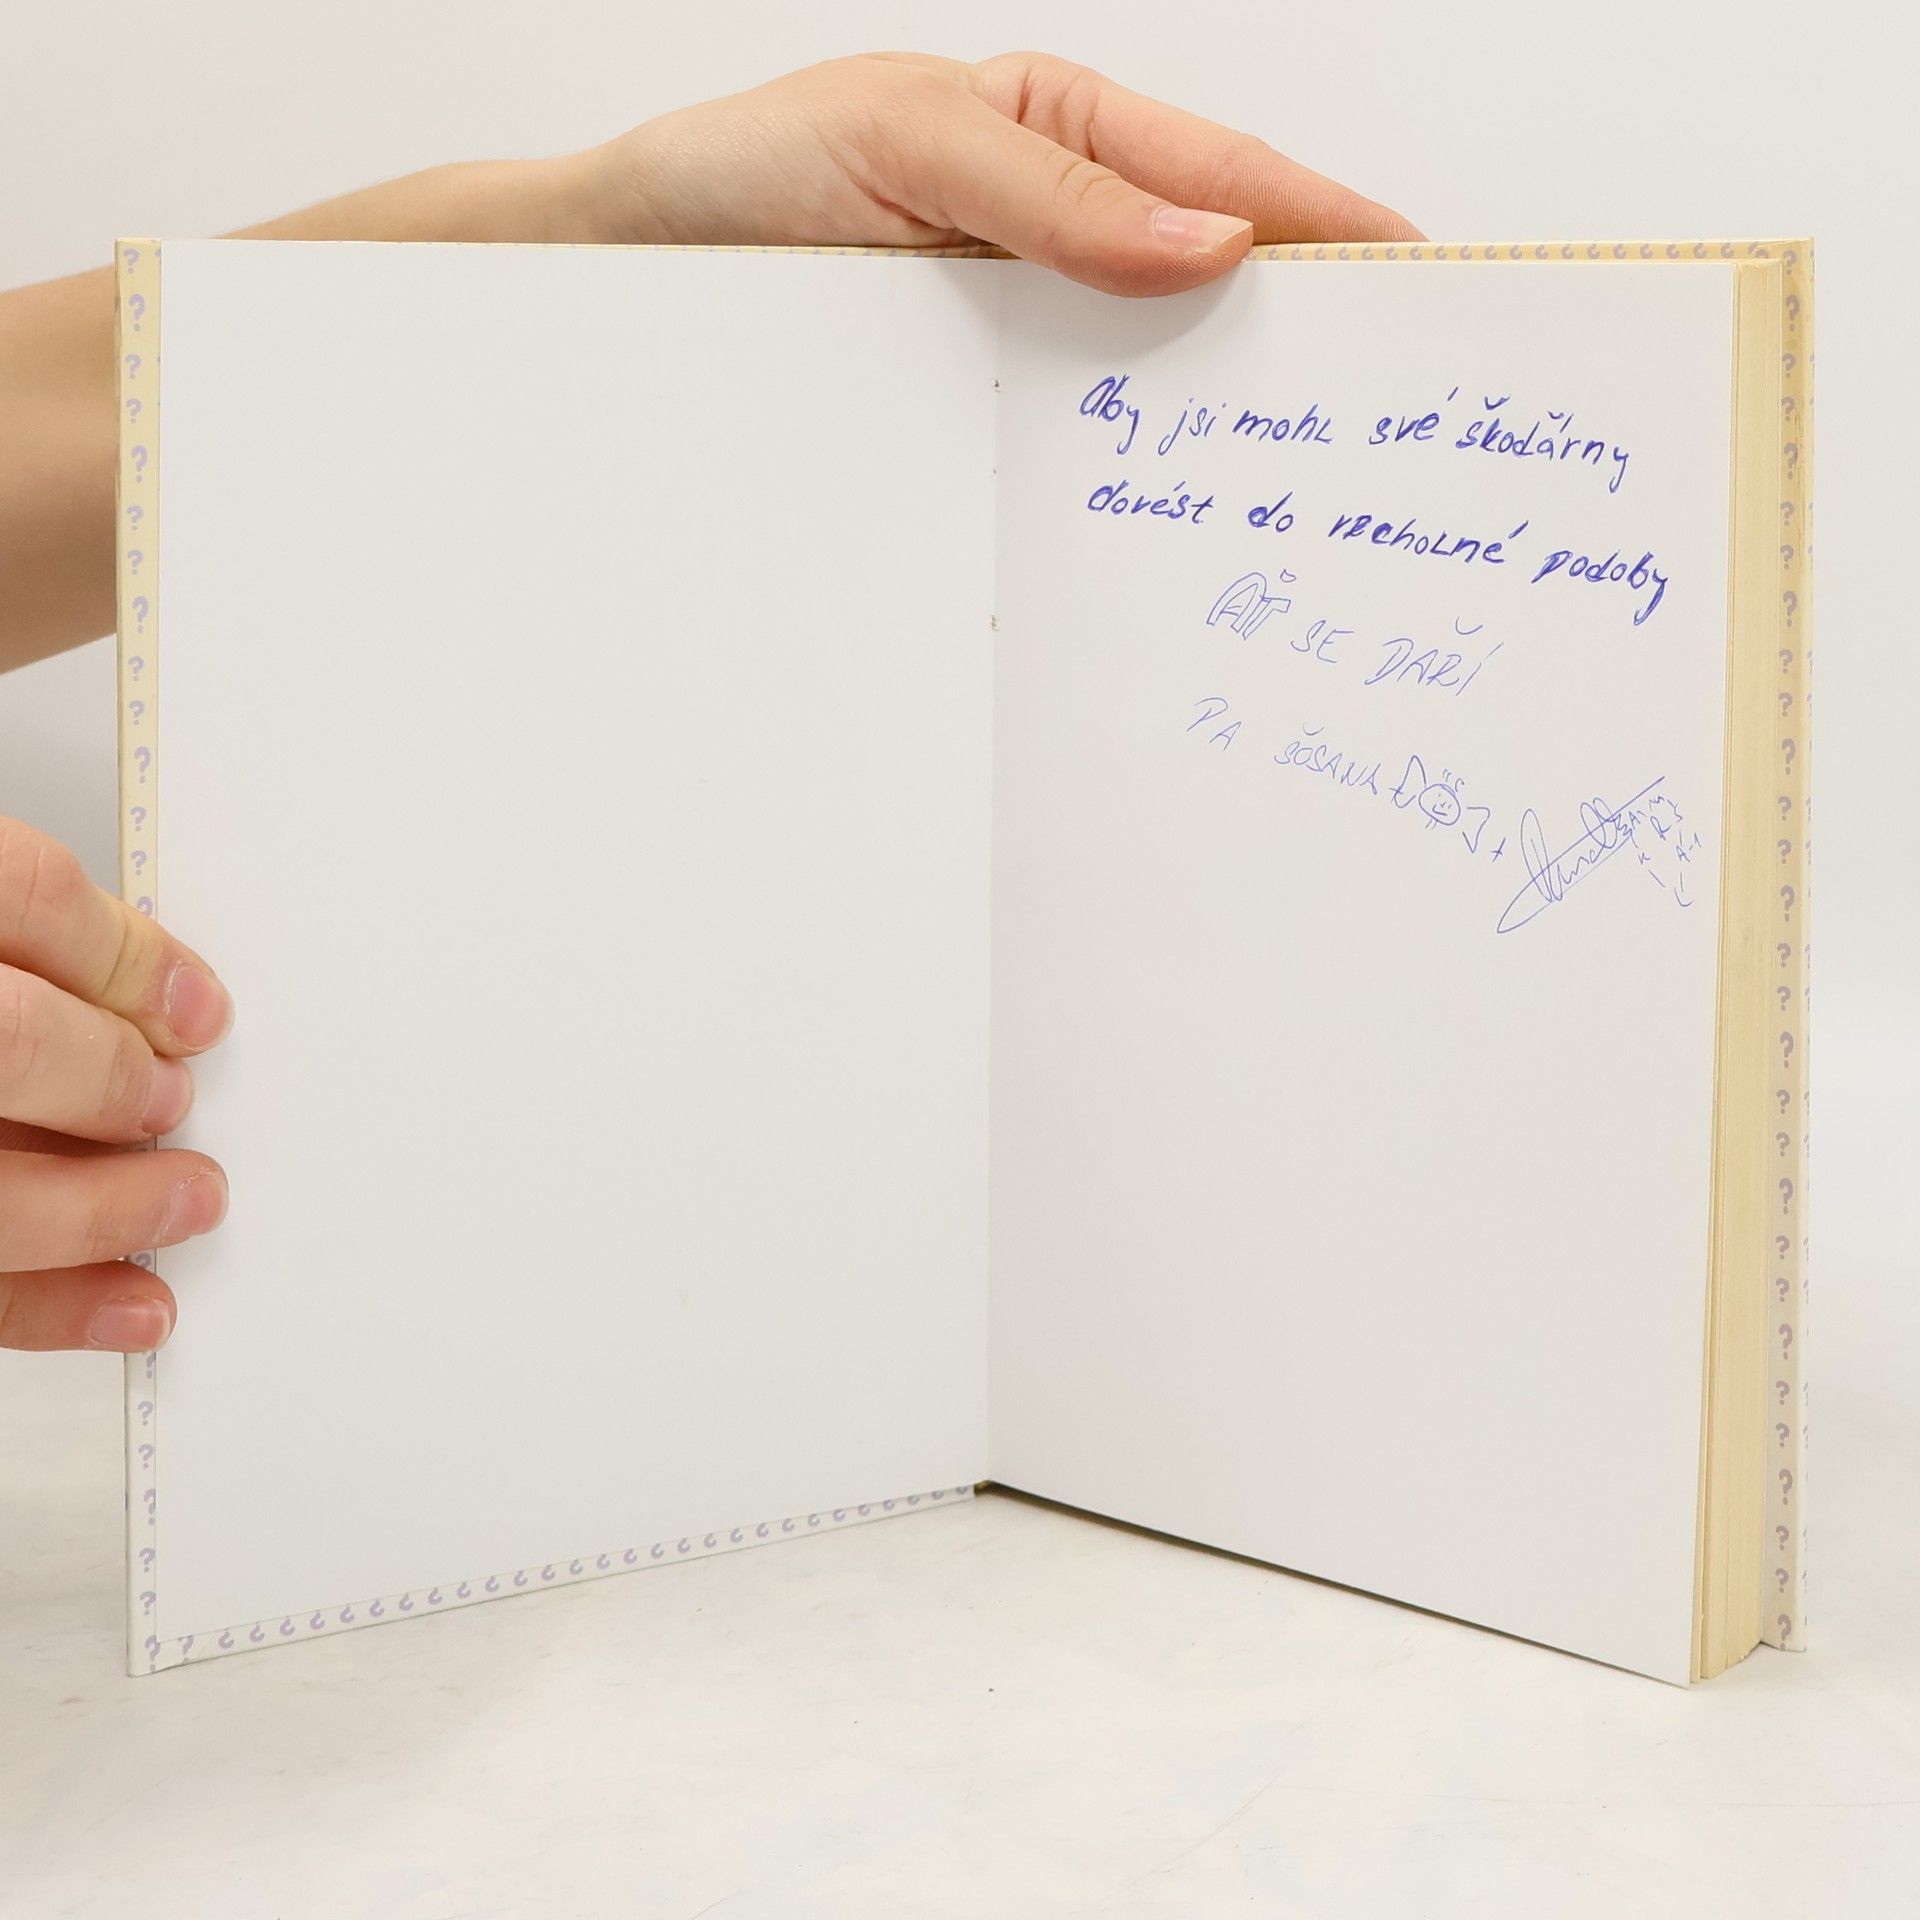 Aby jsi mohl své škodárny
dovést do vrcholné podoby
AŤ SE DAŘÍ
PA ŠOSANA +